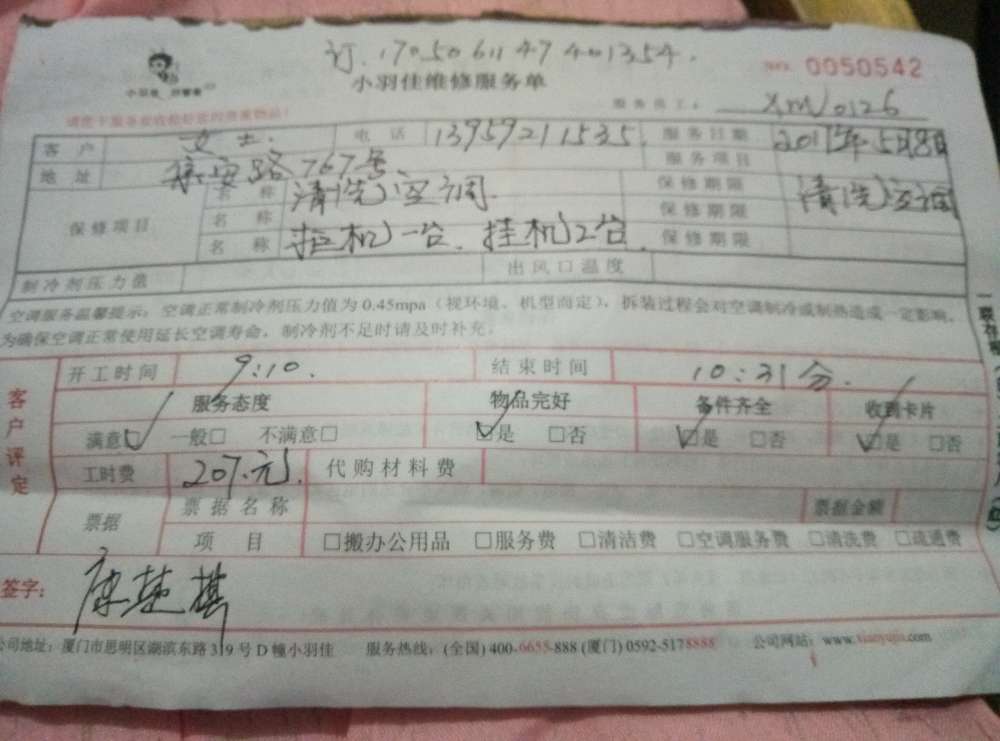 订.1705061147401354.
小羽佳
小羽佳维修服务单
NO. 0050542
服务员工: XMW0126
请您于服务前收拾好您的贵重物品!
客户 女士. 电话 13959211535 服务日期 2017年5月8日
地址 路767号 服务项目 清洗空调
保修项目 名称 清洗空调. 保修期限
名称 柜机一台、挂机2台. 保修期限
名称 保修期限
制冷剂压力值 出风口温度
空调服务温馨提示:空调正常制冷剂压力值为0.45mpa(视环境、机型而定),拆装过程会对空调制冷或制热造成一定影响,
为确保空调正常使用延长空调寿命,制冷剂不足时请及时补充。
客户评定
开工时间 9:10. 结束时间 10:31分.
服务态度 物品完好 备件齐全 收到卡片
满意☑ 一般□ 不满意□ ☑是 □否 ☑是 □否 ☑是 □否
工时费 207.元 代购材料费
票据 票据名称 票据金额
项目 □搬办公用品 □服务费 □清洁费 □空调服务费 □清洗费 □疏通费
签字:
公司地址:厦门市思明区湖滨东路319号D幢小羽佳 服务热线:(全国)400-6655-888 (厦门)0592-5178888 公司网站:www.xiaoyujia.com